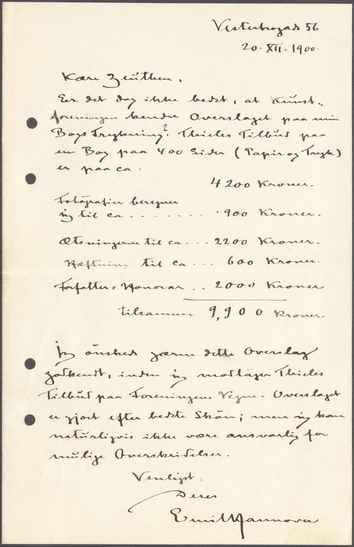 Vesterbrogade 56
20-XII-1900
Kære Zeuthen,
Er det dog ikke bedst, at Kunst-
foreningen kender Overslaget paa min
Bogs Trykning? Thieles Tilbud paa
en Bog paa 400 Sider (Papir og Trykn)
er paa ca.
4200 Kroner.
Fotografier beregner
jeg til ca. . . . . . . . 900 Kroner.
Ætsningerne til ca . . . 2200 Kroner.
Hæftning til ca . . . 600 Kroner.
Forfatter-Honorar . . 2000 Kroner
tilsammen 9,900 Kroner.
Jeg ønsked gærne dette Overslag
godkendt, inden jeg modtager Thieles
Tilbud paa Foreningens Vegne. Overslaget
er gjort efter bedste Skøn; men jeg kan
naturligvis ikke være ansvarlig for
mulige Overskridelser.
Venligst
Deres
Emil Hannover